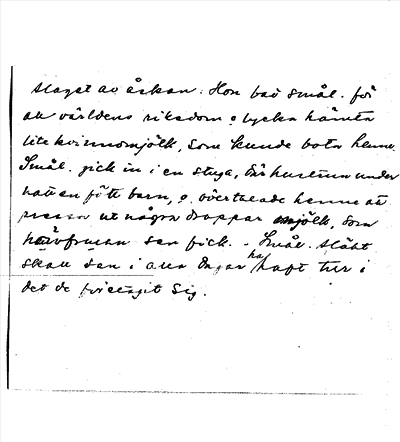 slaget av åskan. Hon bad Smål. för
all världens rikedom o lycka hämta
lite kvinnomjölk, som kunde bota henne.
Smål. gick in i en stuga, där hustrun under
natten fött barn, o. övertalade henne att
pressa ut några droppar mjölk, som
råfruan sen fick. - Smål. släkt
skall sen i alla dagar ha haft tur i
det de företagit sig.